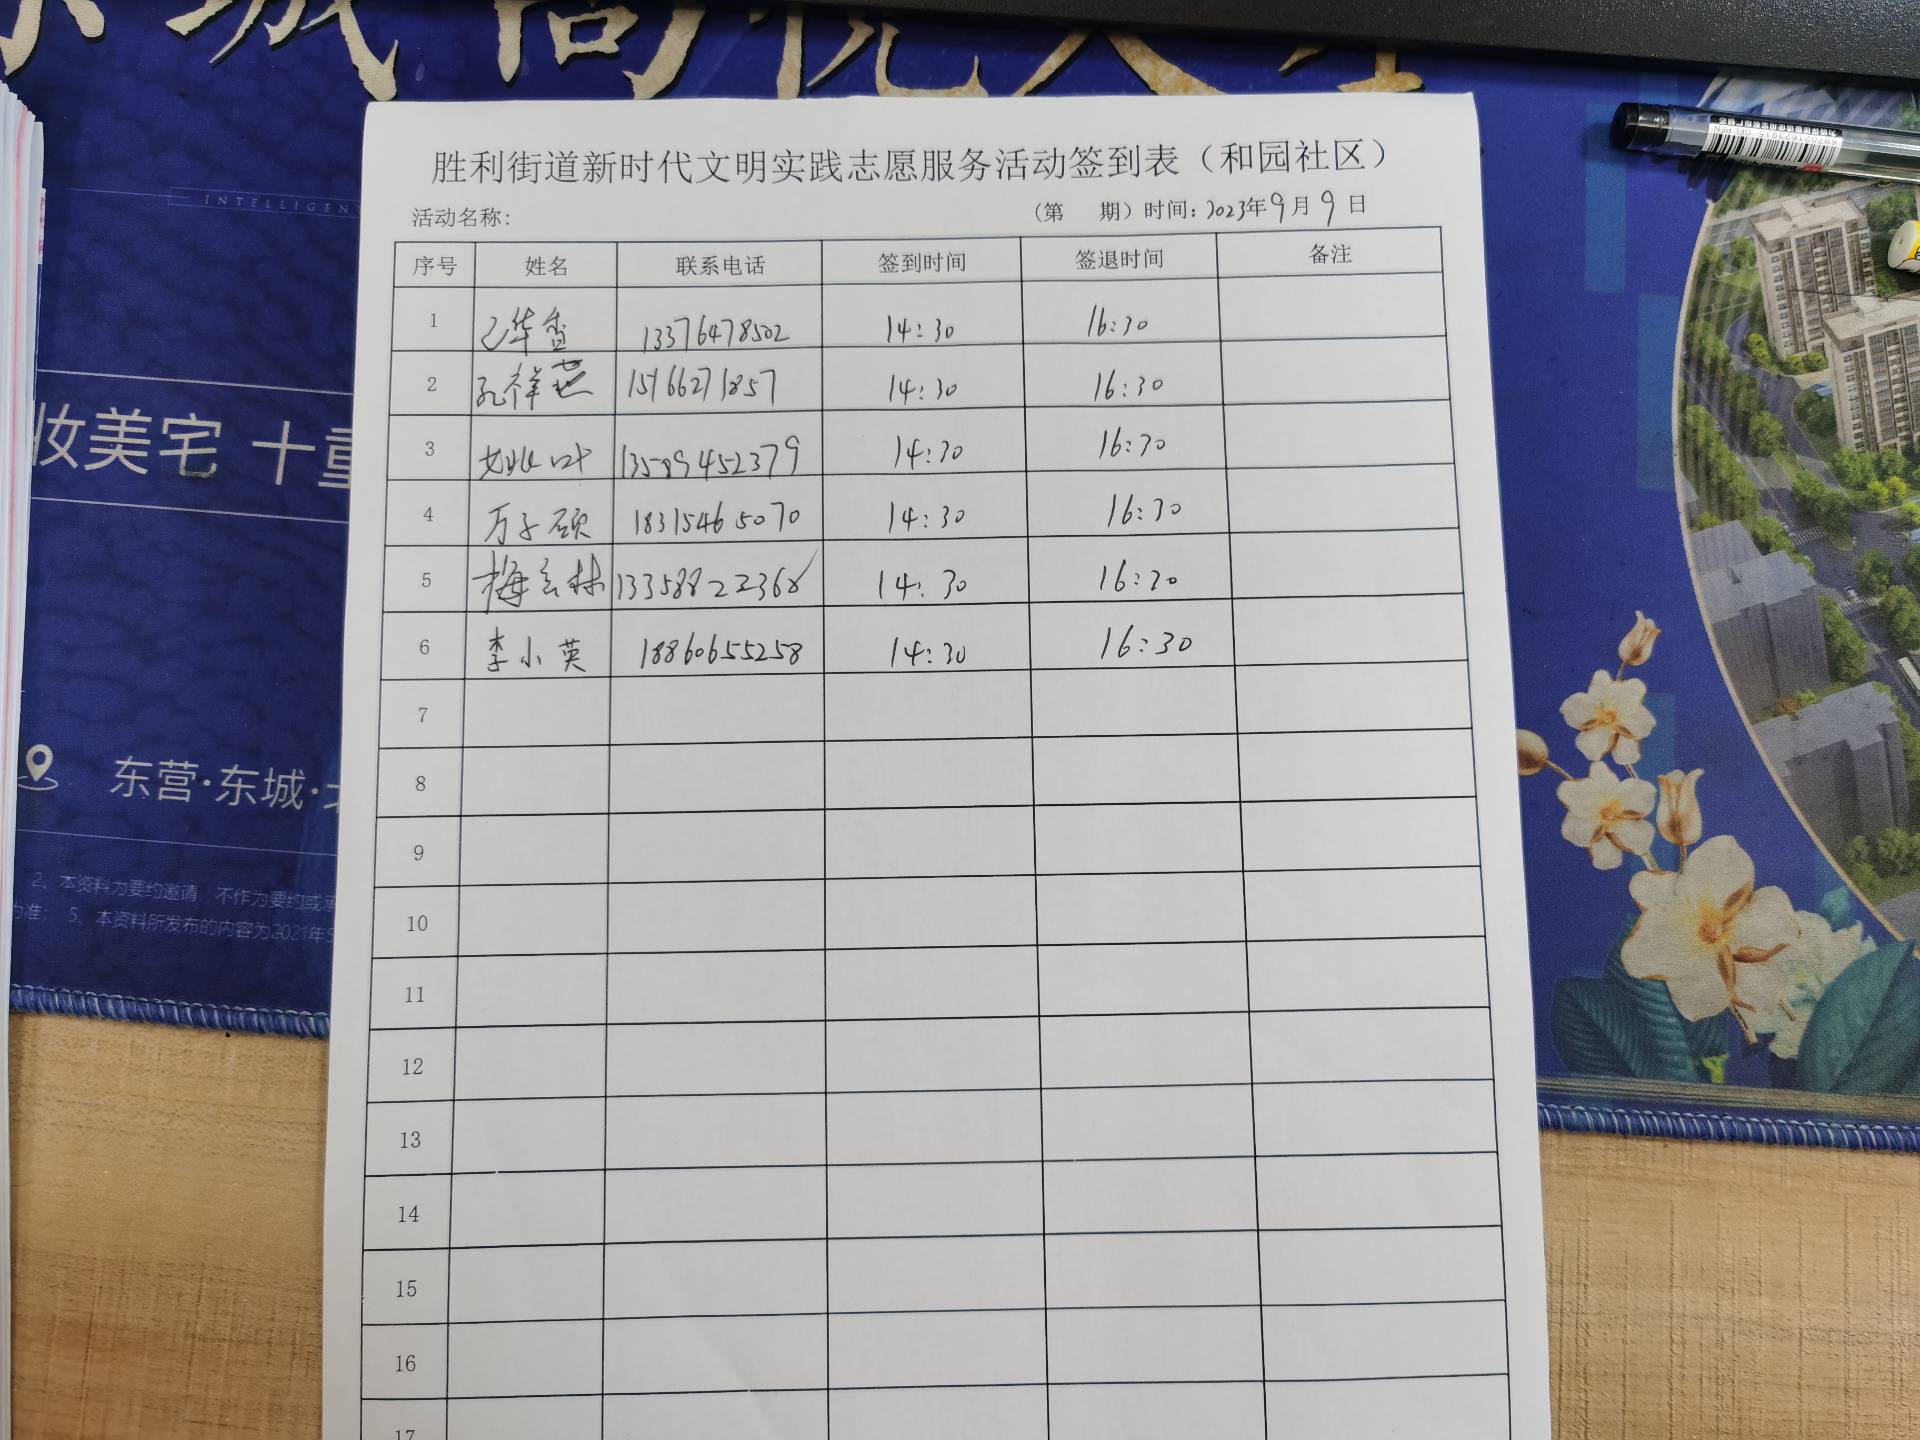 INTELLIGEN
妆美宅 十重
东营·东城·
2、本资料为要约邀请,不作为要约或承
为准; 5、本资料所发布的内容为2021年5
胜利街道新时代文明实践志愿服务活动签到表(和园社区)
活动名称: (第 期)时间:2023年9月9日
序号 姓名 联系电话 签到时间 签退时间 备注
1 华香 13376478502 14:30 16:30
2 孔祥燕 15166271857 14:30 16:30
3 姚叶 13589452379 14:30 16:30
4 万子硕 18315465070 14:30 16:30
5 梅云林 13358822368 14:30 16:30
6 李小英 18860655258 14:30 16:30
7
8
9
10
11
12
13
14
15
16
17